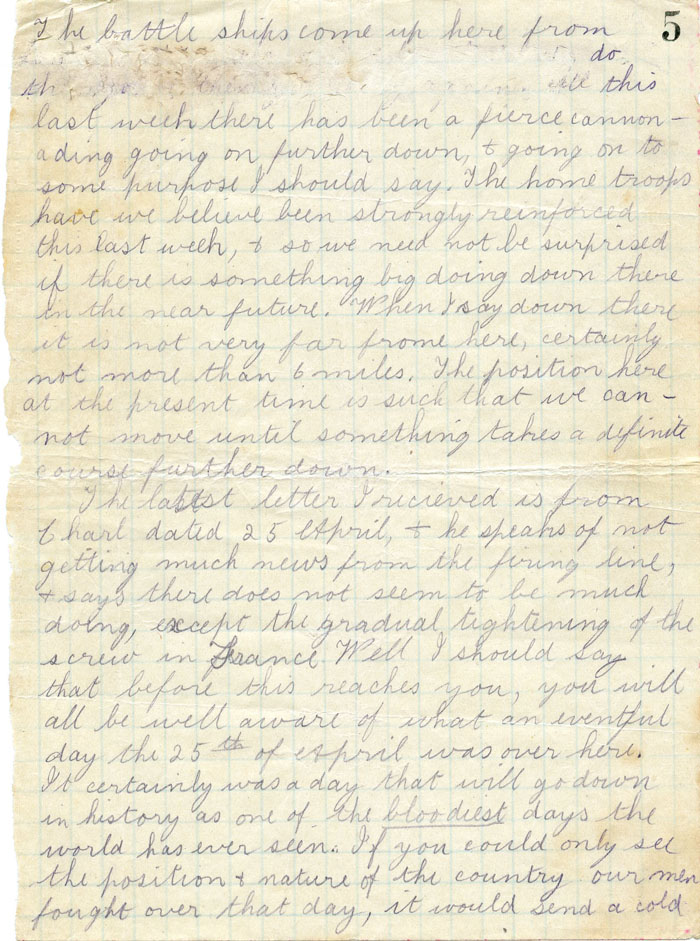 5
The battle ships come up here from
do
all this
last week there has been a fierce cannon-
ading going on further down, & going on to
some purpose I should say. The home troops
have we believe been strongly reinforced
this last week, & so we need not be surprised
if there is something big doing down there
in the near future. When I say down there
it is not very far frome here, certainly
not more than 6 miles. The position here
at the present time is such that we can-
not move until something takes a definite
course further down.
The latest letter I recieved is from
Charl dated 25 April, & he speaks of not
getting much news from the firing line,
& says there does not seem to be much
doing, except the gradual tightening of the
screw in France. Well I should say
that before this reaches you, you will
all be well aware of what an eventful
day the 25th of April was over here.
It certainly was a day that will go down
in history as one of the bloodiest days the
world has ever seen. If you could only see
the position & nature of the country our men
fought over that day, it would send a cold